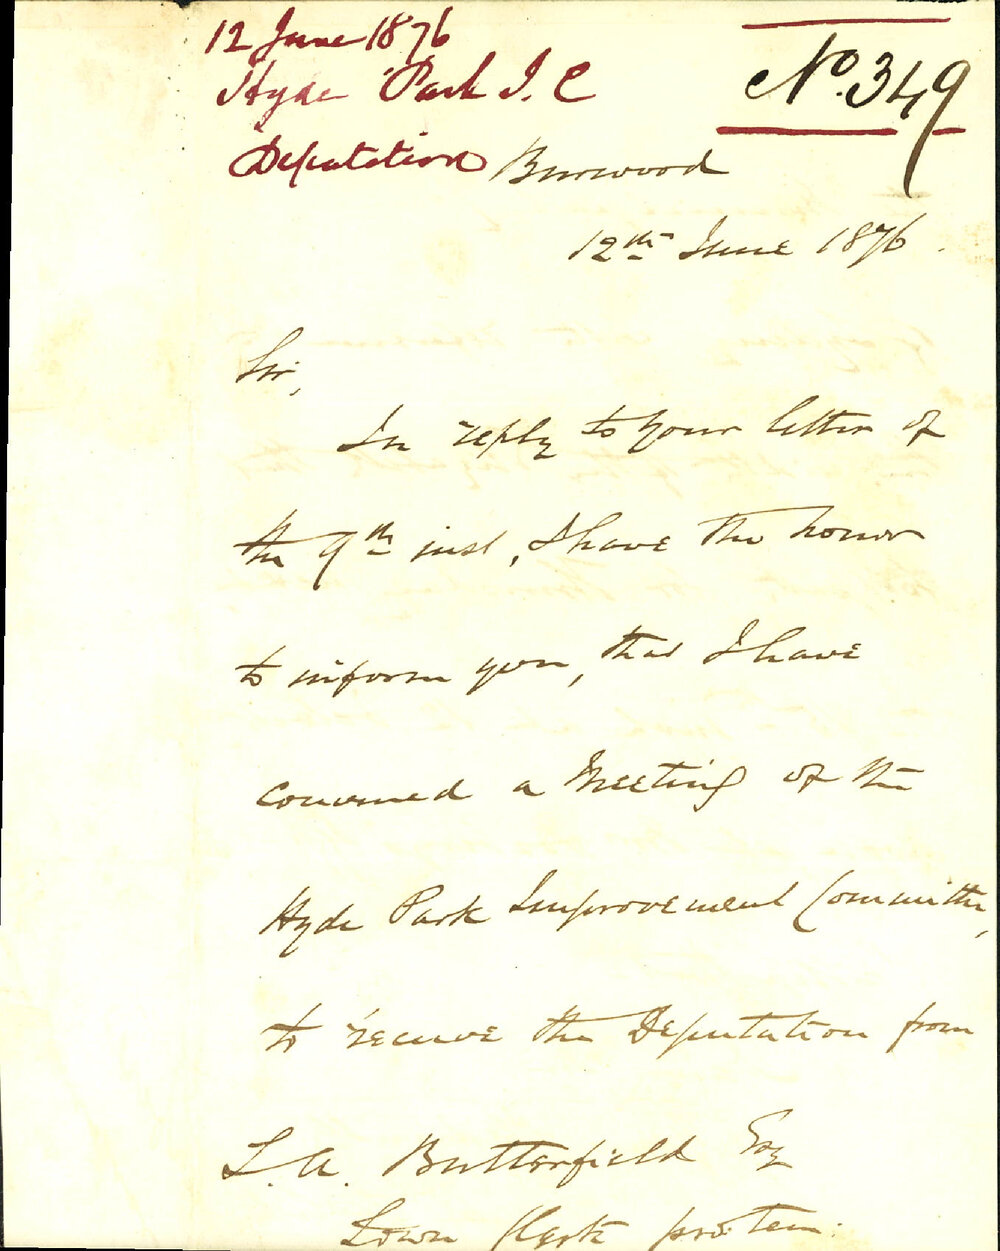 12 June 1876
Hyde Park I. C
Deputation
No. 349
Burwood
12th June 1876.
Sir,
In reply to your letter of
the 9th inst, I have the honor
to inform you, that I have
convened a Meeting of the
Hyde Park Improvement Committee,
to receive the Deputation from
L. A. Butterfield Esq
Town Clerk pro: tem: